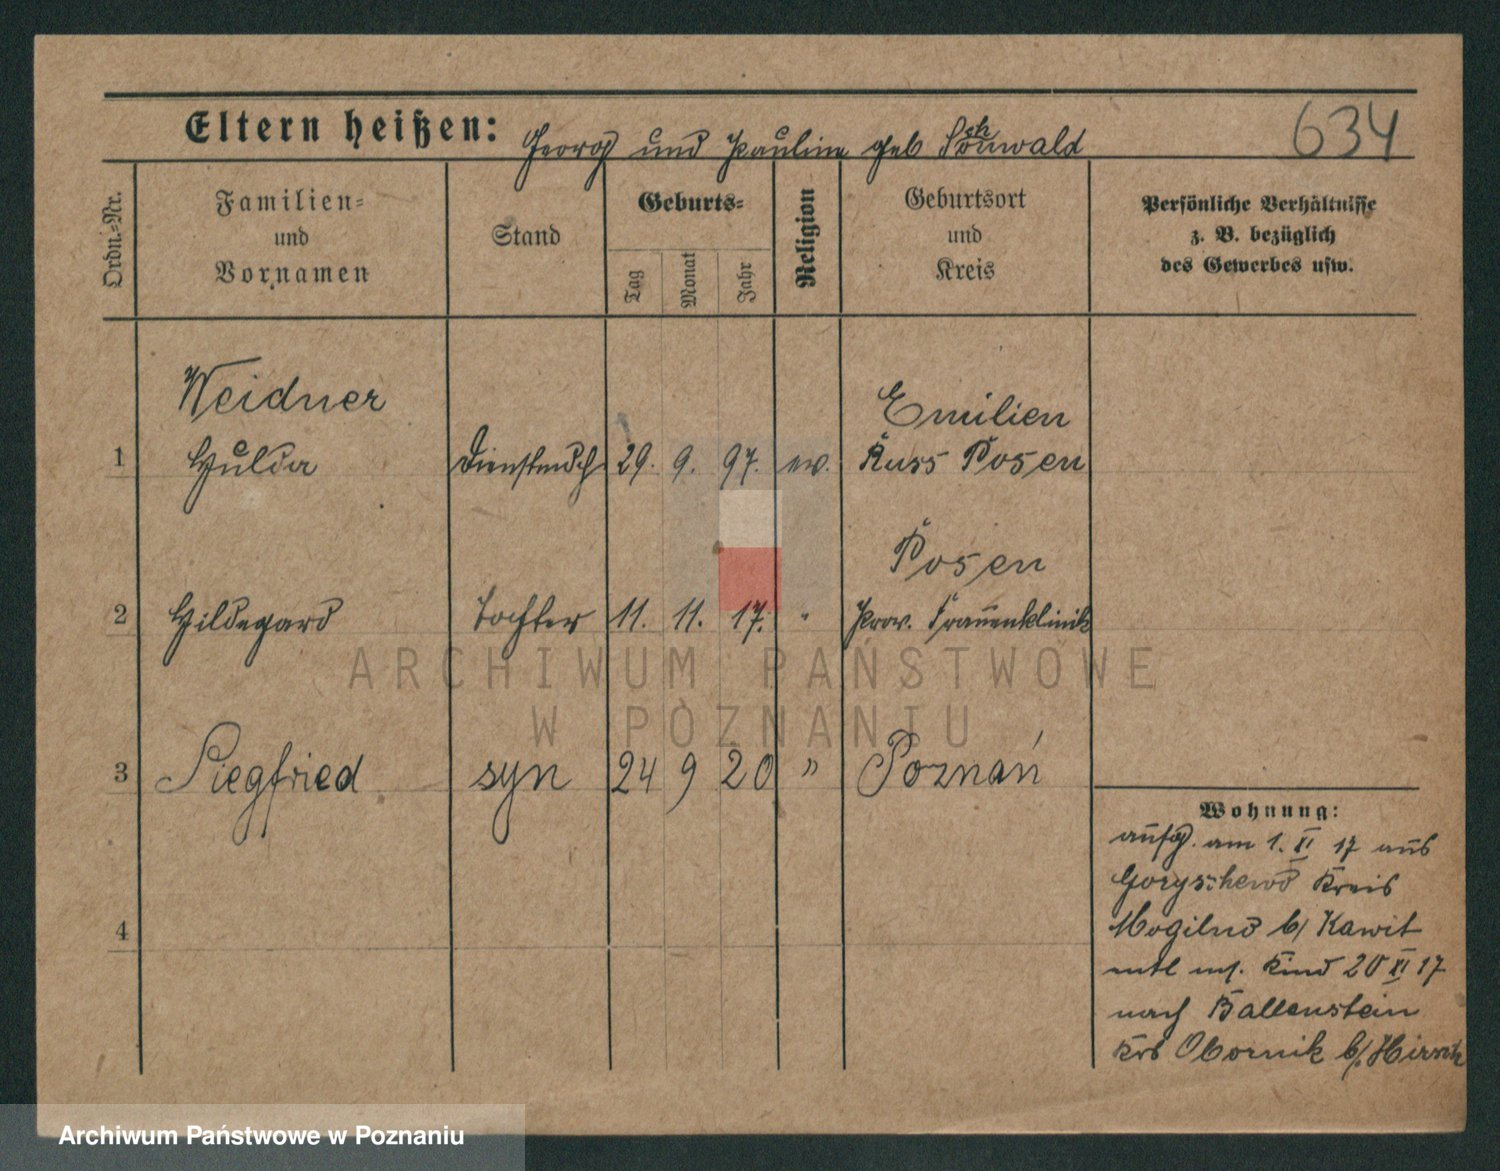 Eltern heißen: Georg und Pauline geb Schönwald
634
Ordn.-Nr.
Familien-
und
Vornamen
Stand
Geburts-
Tag
Monat
Jahr
Religion
Geburtsort
und
Kreis
Persönliche Verhältnisse
z. B. bezüglich
des Gewerbes usw.
Weidner
Emilien
1 Hulda Dienstmdch 29. 9. 97. ev. Russ Posen
Posen
2 Hildegard Tochter 11. 11. 17. " Prov. Frauenklinik
ARCHIWUM PAŃSTWOWE
W POZNANIU
3 Siegfried syn 24 9 20 " Poznań
4
Wohnung:
aufg. am 1. XI 17 aus
Goryschewo Kreis
Mogilno b/ Kawit
mtl m. Kind 20 XI 17
nach Ballenstein
Krs Obornik b/
Archiwum Państwowe w Poznaniu